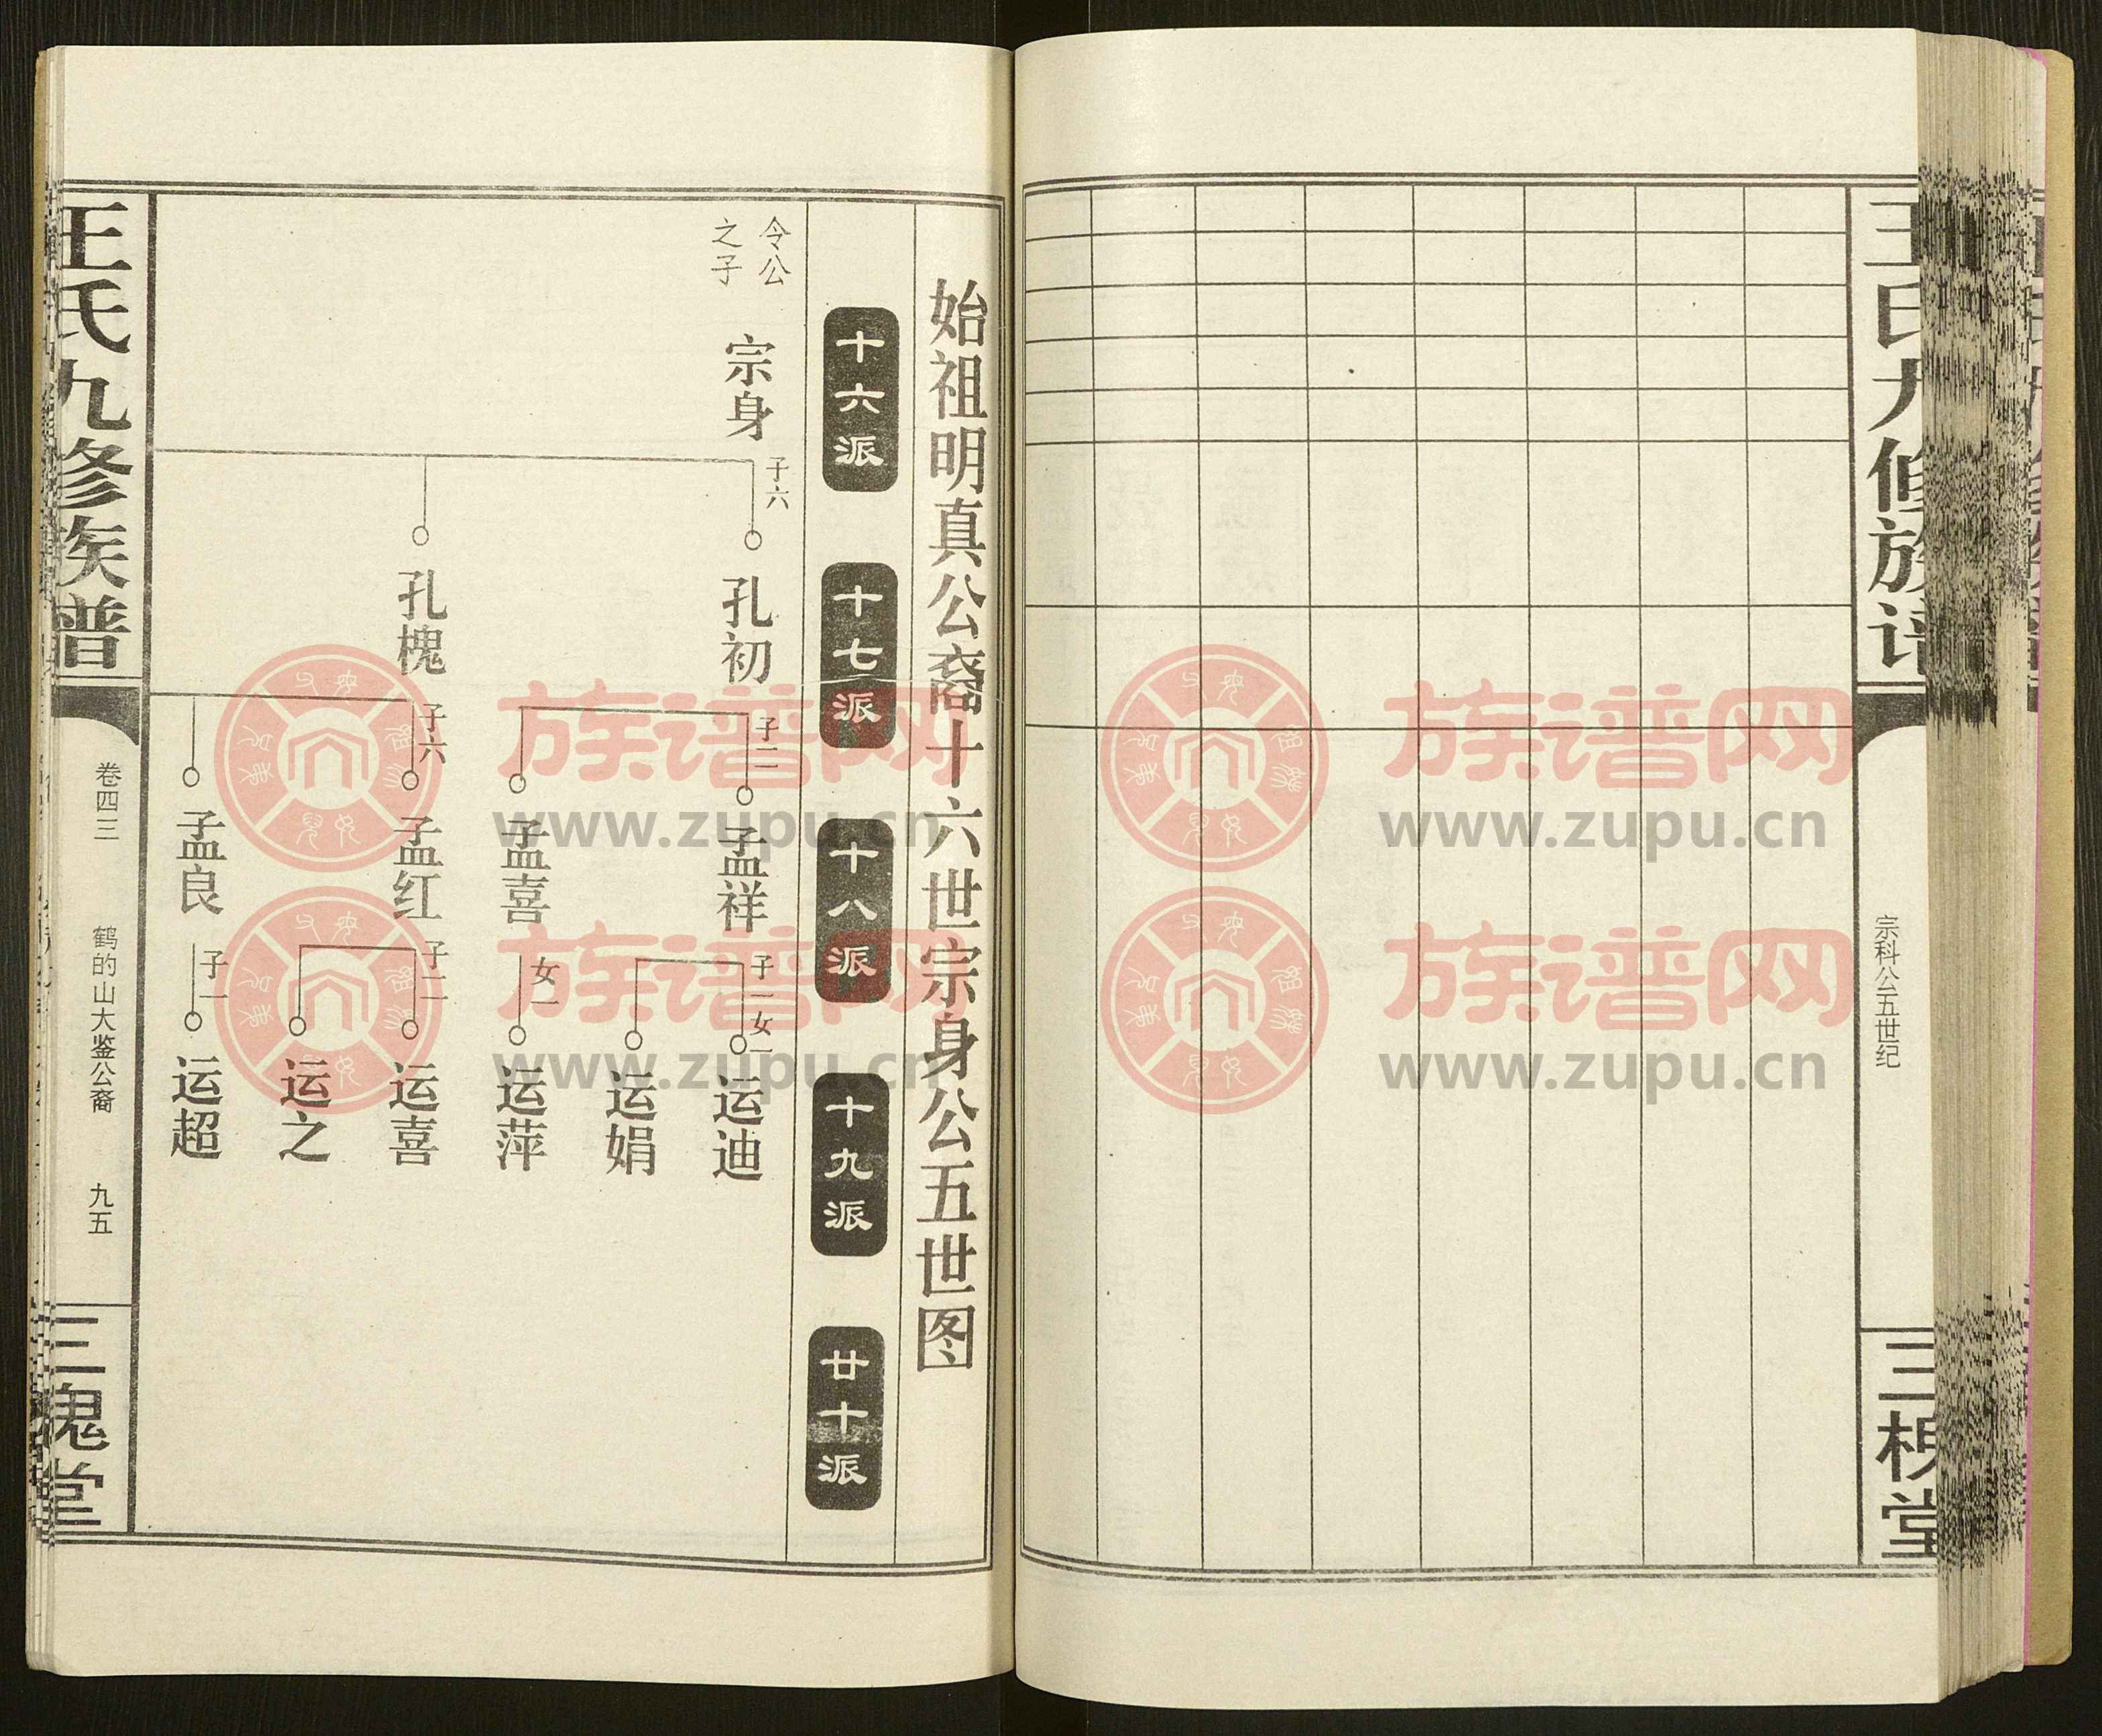 王氏九修族谱
宗科公五世纪
三槐堂
始祖明真公裔十六世宗身公五世图
十六派
十七派
十八派
十九派
廿十派
令公
之子
宗身
子六
孔初
子二
孟祥
子一女一
运迪
运娟
孟喜
女一
运萍
孔槐
子六
孟红
子二
运喜
运之
孟良
子一
运超
王氏九修族谱
卷四三
鹤的山大鉴公裔
九五
三槐堂
族谱网
www.zupu.cn
族谱网
www.zupu.cn
族谱网
www.zupu.cn
族谱网
www.zupu.cn